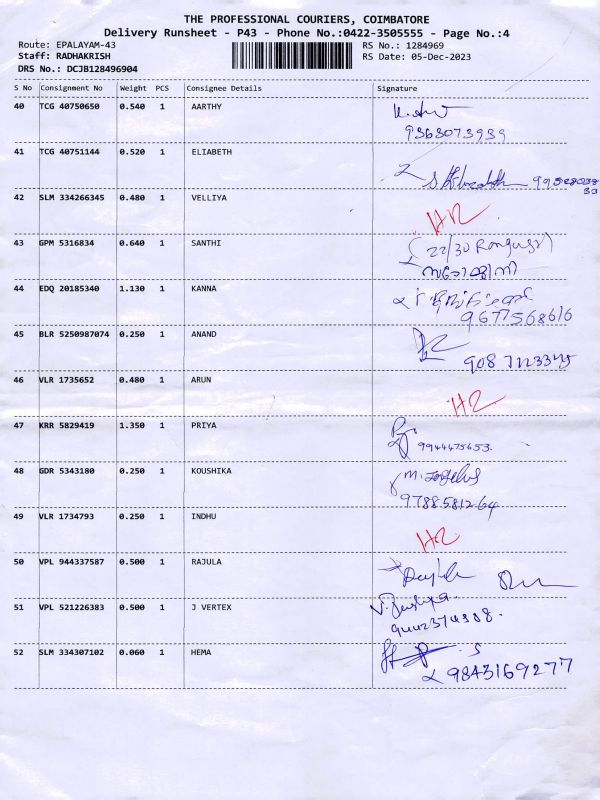 THE PROFESSIONAL COURIERS, COIMBATORE
Delivery Runsheet - P43 - Phone No.:0422-3505555 - Page No.:4
Route: EPALAYAM-43 RS No.: 1284969
Staff: RADHAKRISH RS Date: 05-Dec-2023
DRS No.: DCJB128496904
S No Consignment No Weight PCS Consignee Details Signature
40 TCG 40750650 0.540 1 AARTHY
9363073939
41 TCG 40751144 0.520 1 ELIABETH
42 SLM 334266345 0.480 1 VELLIYA
43 GPM 5316834 0.640 1 SANTHI
22/30
44 EDQ 20185340 1.130 1 KANNA
9677568616
45 BLR 5250987074 0.250 1 ANAND
46 VLR 1735652 0.480 1 ARUN
47 KRR 5829419 1.350 1 PRIYA
9944475653.
48 GDR 5343180 0.250 1 KOUSHIKA
9788581264
49 VLR 1734793 0.250 1 INDHU
50 VPL 944337587 0.500 1 RAJULA
51 VPL 521226383 0.500 1 J VERTEX
52 SLM 334307102 0.060 1 HEMA
9843169277